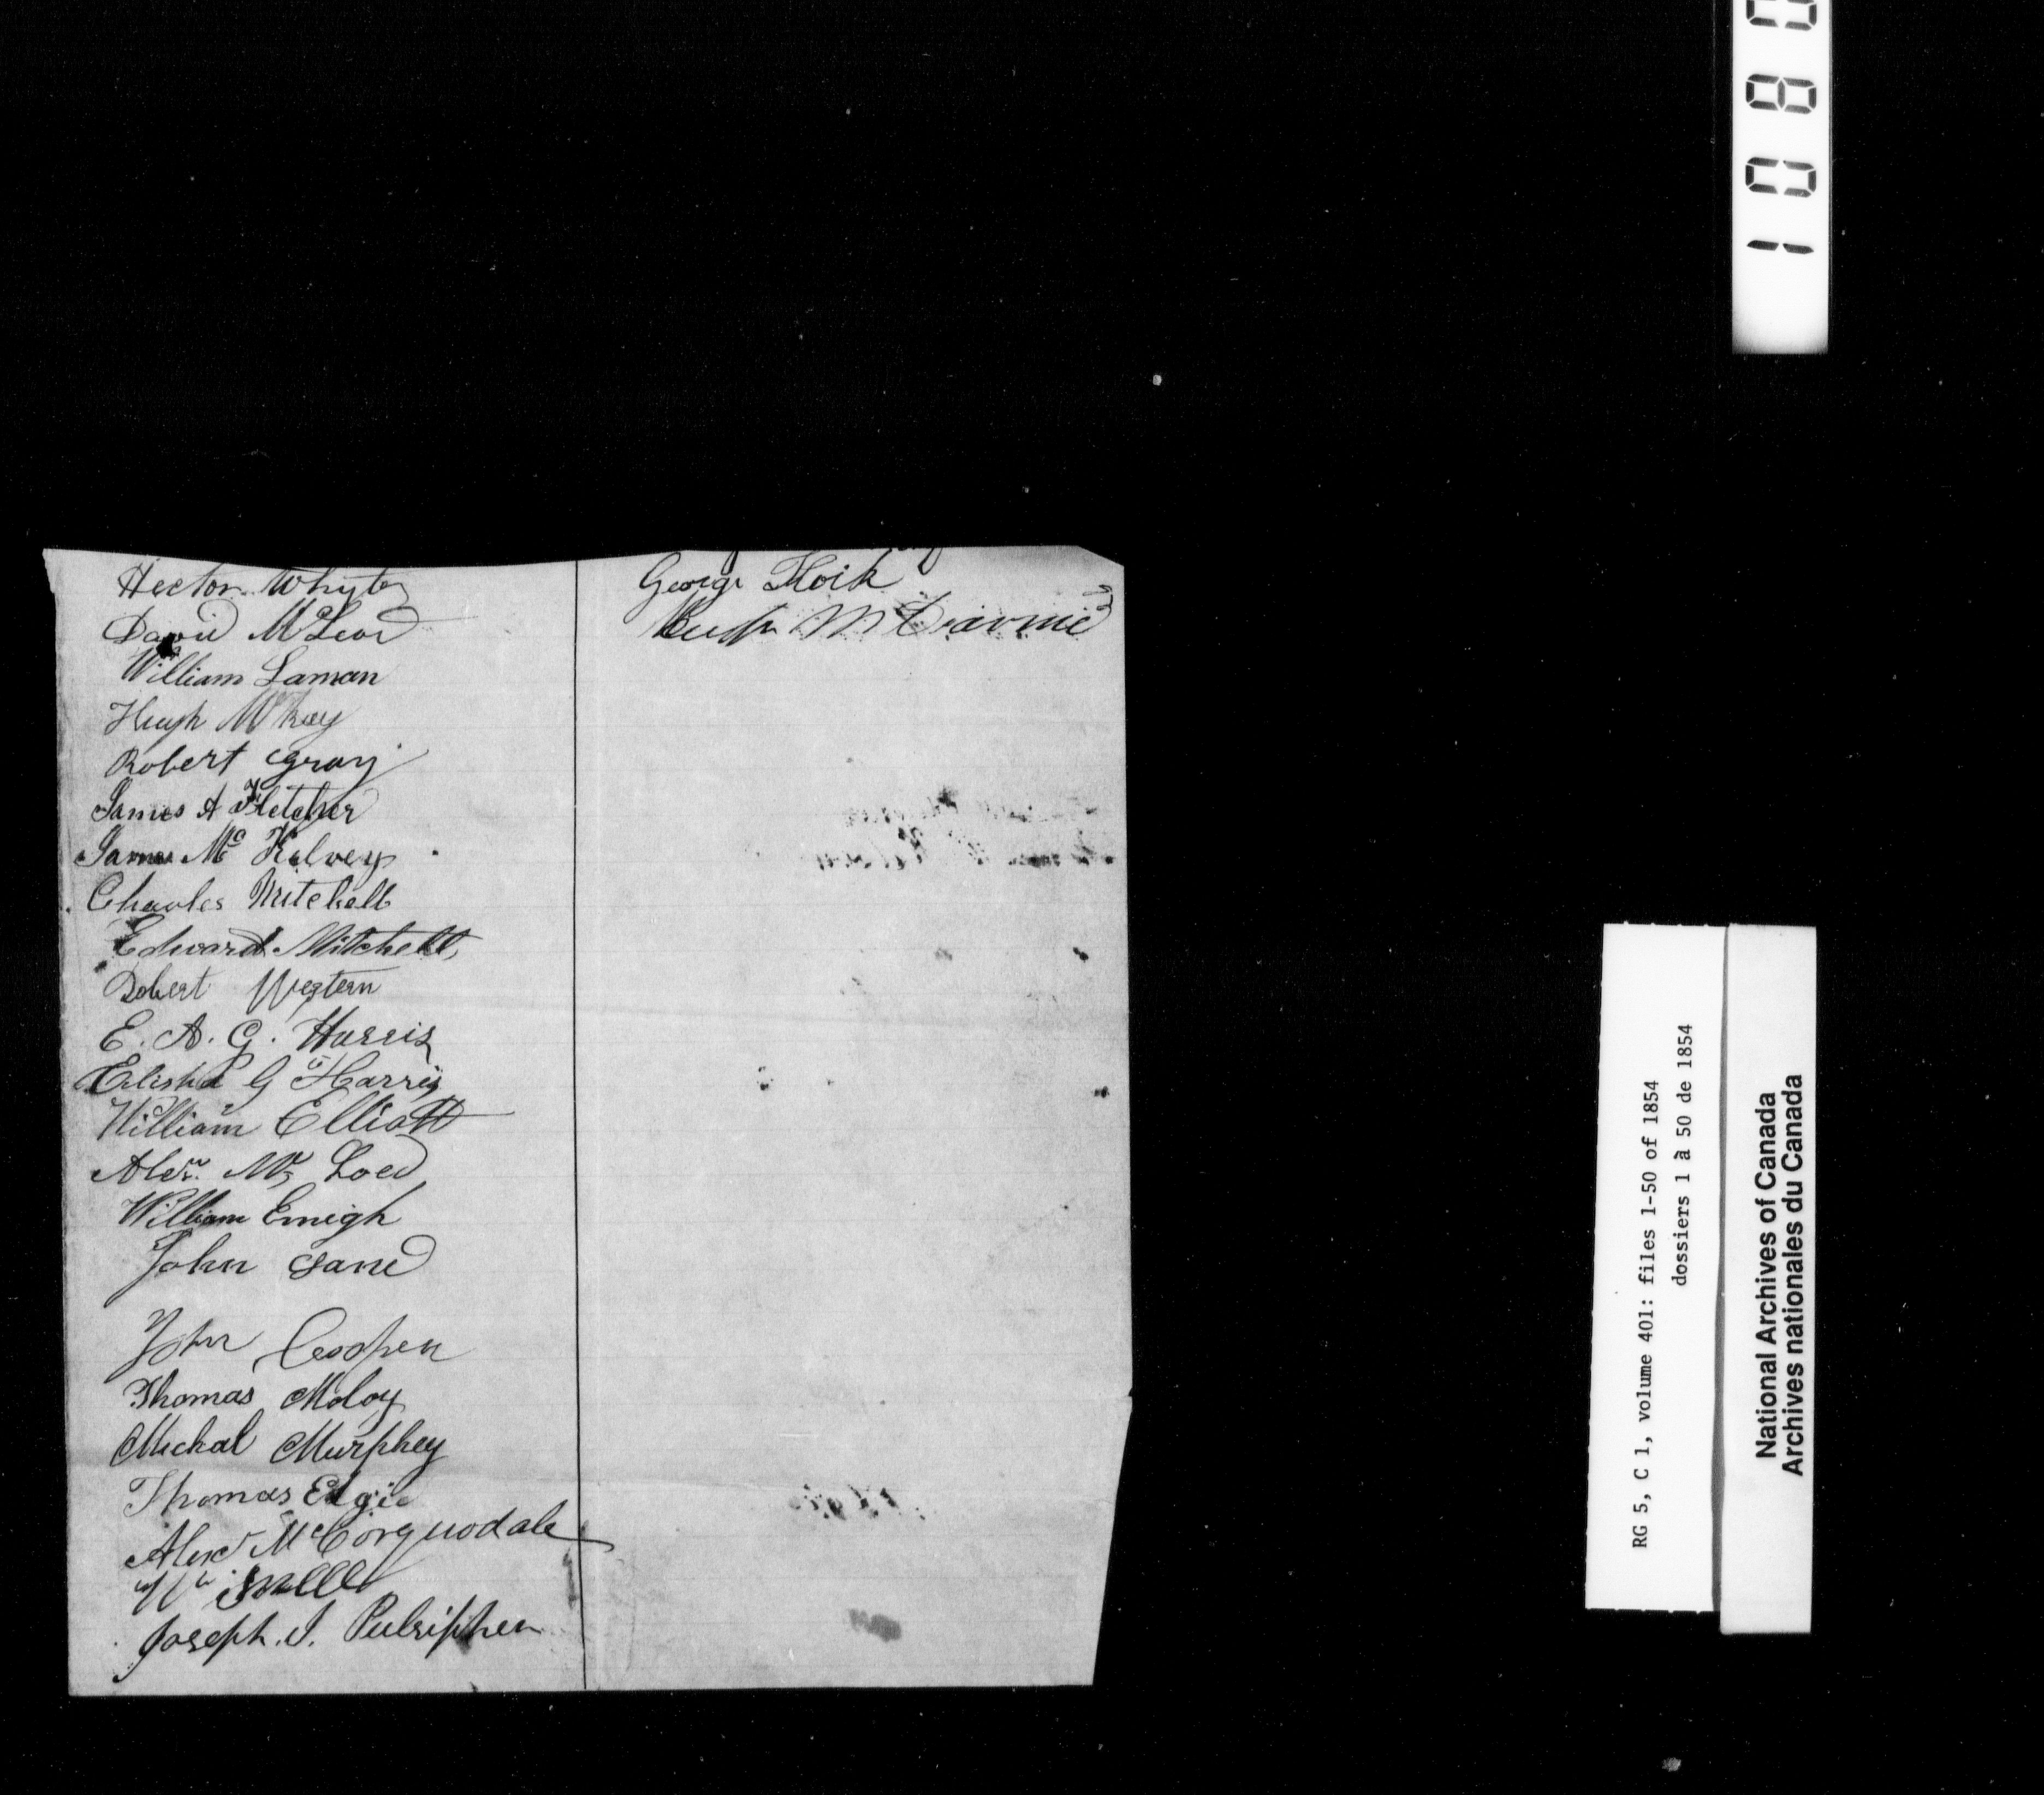 Hector Whyte
David McLeod
William Laman
Hugh McKay
Robert Gray
James A Fletcher
James Mc Kelvey
Charles Mitchell
Edward Mitchell
Robert Western
E. A. G. Harris
Elisha G Harris
William Elliott
Alexr. Mc Loed
William Emigh
John Lane
John Cooper
Thomas Moloy
Michal Murphey
Thomas Elgie
Alexr McCorquodale
Joseph. J. Pulsipher
George
Hugh
1080
RG 5, C 1, volume 401: files 1-50 of 1854
dossiers 1 à 50 de 1854
National Archives of Canada
Archives nationales du Canada